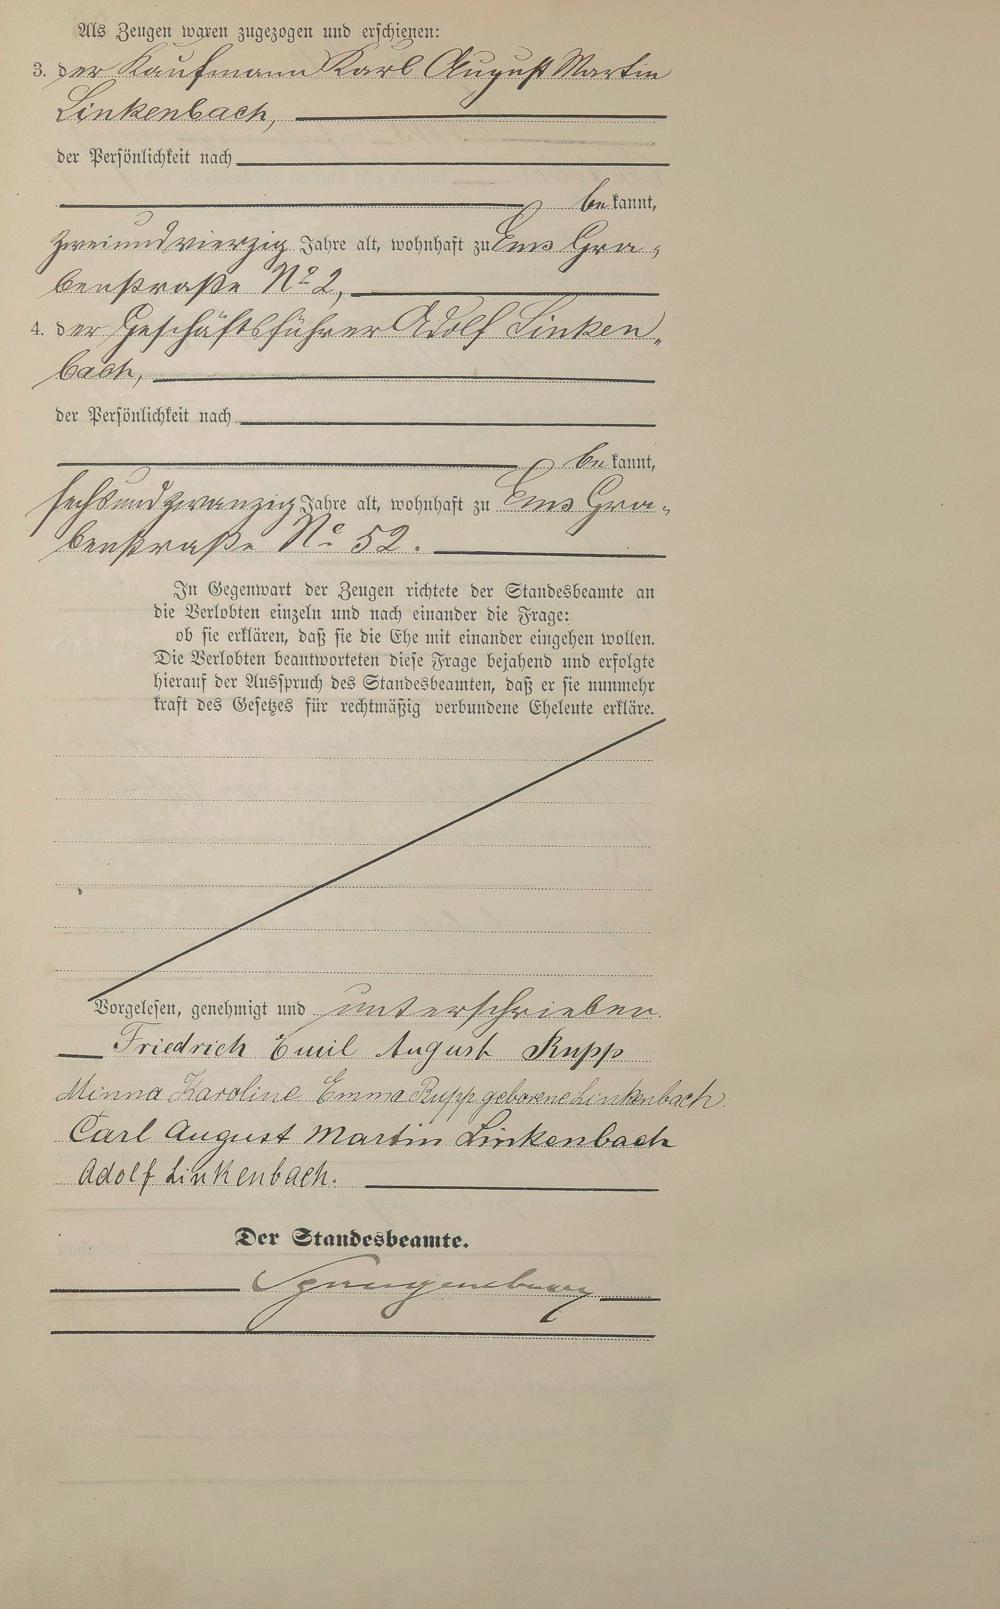 Als Zeugen waren zugezogen und erschienen:
3. der Kaufmann Karl August Martin
Linkenbach,
der Persönlichkeit nach
be kannt,
zweiundvierzig Jahre alt, wohnhaft zu Ems Gra-
benstraße No 2,
4. der Geschäftsführer Adolf Linken-
bach,
der Persönlichkeit nach
be kannt,
sechsundzwanzig Jahre alt, wohnhaft zu Ems Gra-
benstraße No 52.
In Gegenwart der Zeugen richtete der Standesbeamte an
die Verlobten einzeln und nach einander die Frage:
ob sie erklären, daß sie die Ehe mit einander eingehen wollen.
Die Verlobten beantworteten diese Frage bejahend und erfolgte
hierauf der Ausspruch des Standesbeamten, daß er sie nunmehr
kraft des Gesetzes für rechtmäßig verbundene Eheleute erkläre.
Vorgelesen, genehmigt und unterschrieben.
Friedrich Emil August Rupp
Minna Karoline Emma Rupp geborene Linkenbach.
Carl August Martin Linkenbach
Adolf Linkenbach.
Der Standesbeamte.